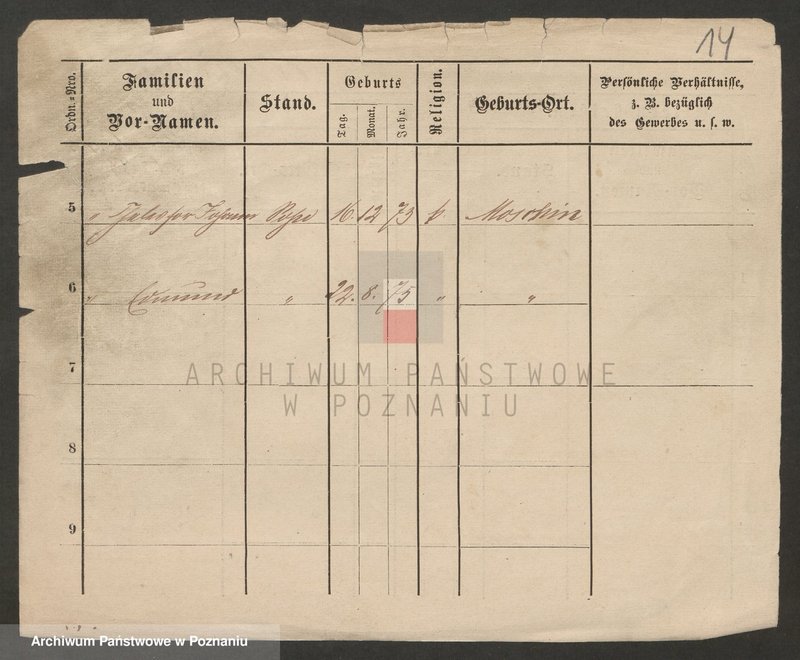 14
Ordn.-Nro.
Familien
und
Vor-Namen.
Stand.
Geburts
Tag.
Monat.
Jahr.
Religion.
Geburts-Ort.
Persönliche Verhältnisse,
z. B. bezüglich
des Gewerbes u. s. w.
5 " 16. 12 73 k. Moschin
6 " Edmund " 22. 8. 75 " "
7
ARCHIWUM PAŃSTWOWE
W POZNANIU
8
9
Archiwum Państwowe w Poznaniu